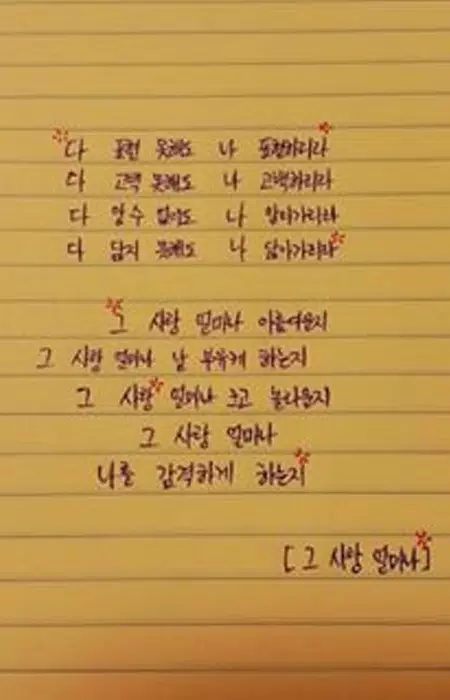 다 표현 못해도 나 표현하리라
다 고백 못해도 나 고백하리라
다 알수 없어도 나 알아가리라
다 닮지 못해도 나 닮아가리라
그 사랑 얼마나 아름다운지
그 사랑 얼마나 날 부유케 하는지
그 사랑 얼마나 크고 놀라운지
그 사랑 얼마나
나를 감격하게 하는지
[그 사랑 얼마나]